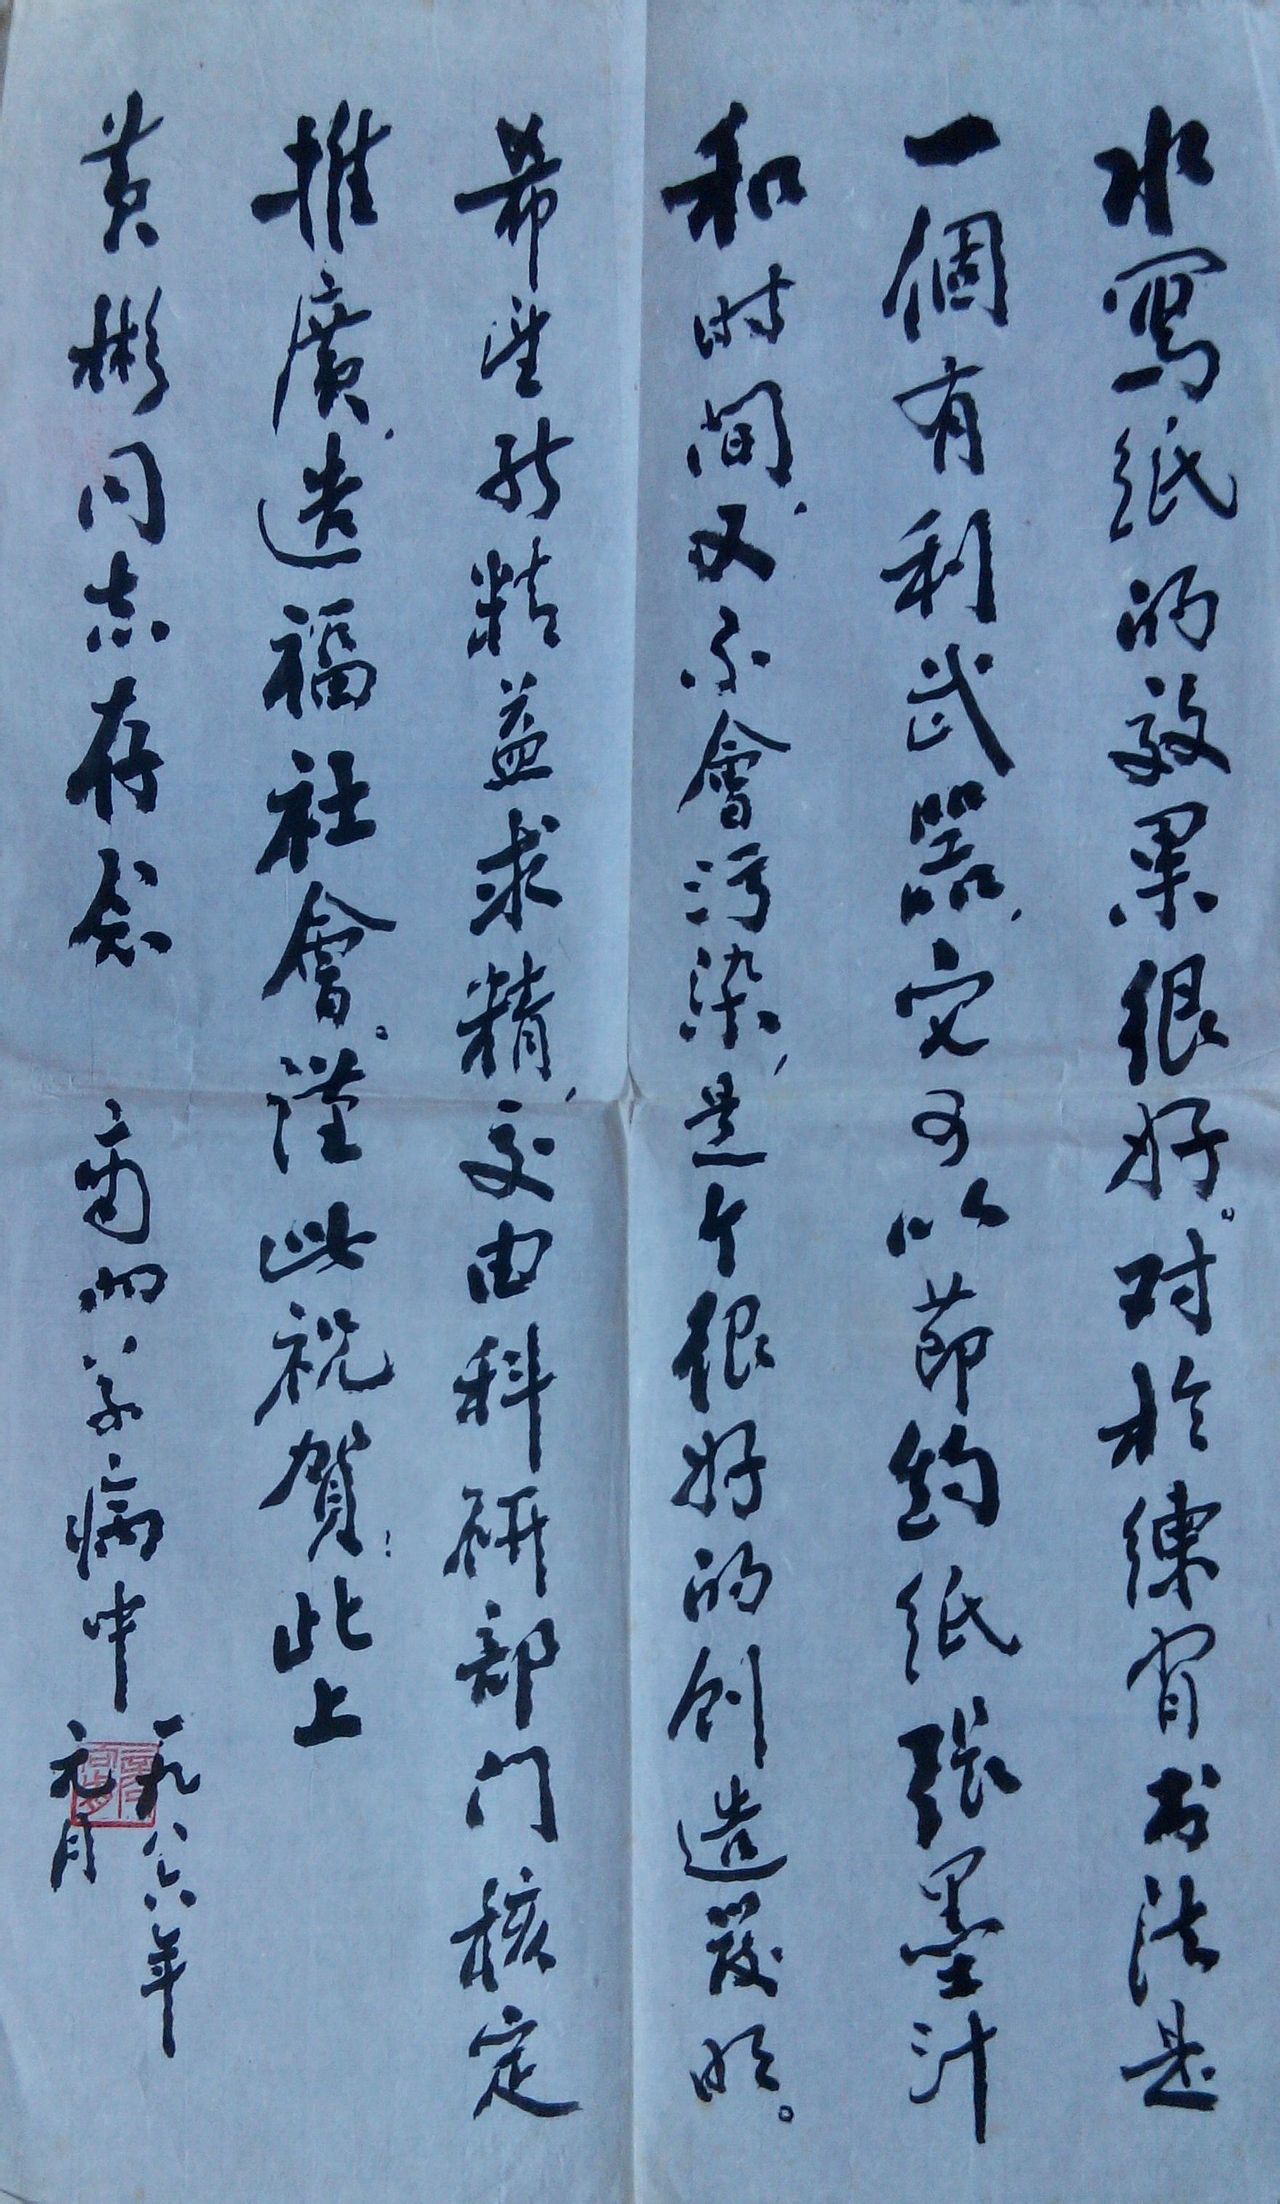 水寫紙的效果很好。对於練習书法是
一個有利武器，它可以節約紙張墨汁
和时间，又不會污染，是个很好的创造發明。
希望能精益求精，交由科研部门核定
推廣，造福社會。谨此祝賀！此上
黄彬同志存念
商向前病中
一九八六年
元月